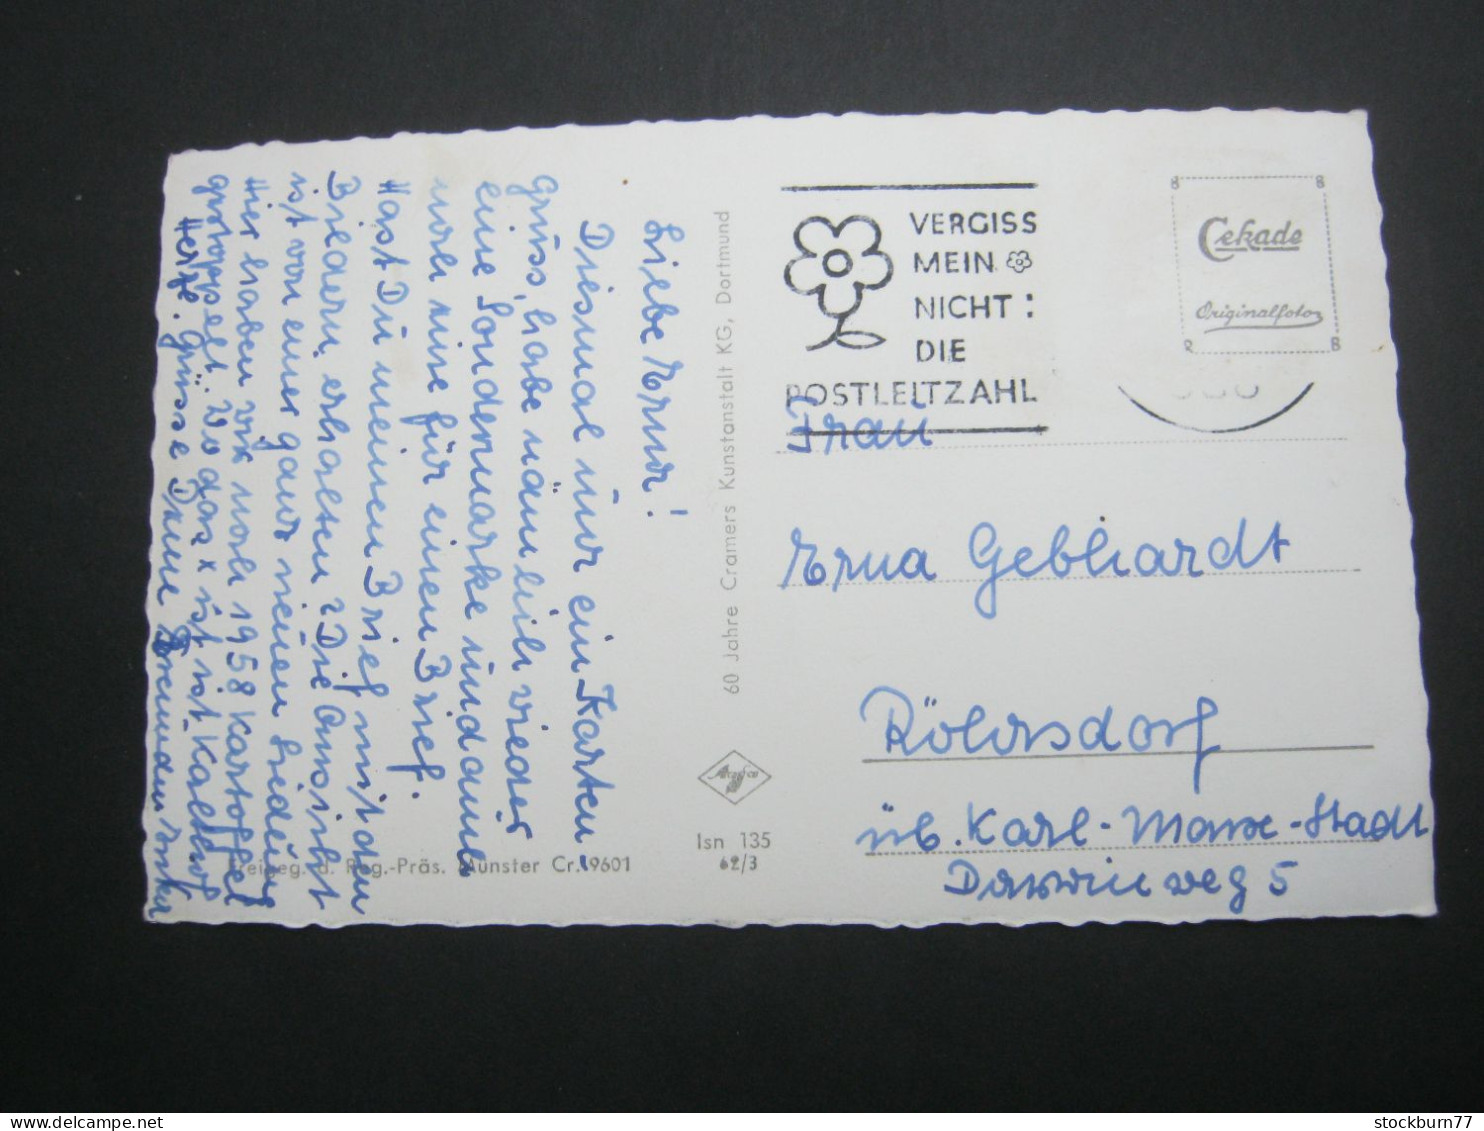 Liebe Erna!
Diesmal nur ein Karten-
gruss, habe nämlich wieder
eine Sondermarke und dann
noch eine für einen Brief.
Hast Du meinen Brief mit den
Bildern erhalten? Die Ansicht
ist von einer ganz neuen Siedlung
Hier haben wir noch 1958 Kartoffel
gestoppelt. Wo das x ist ist Kalthof
Herzl. Grüsse Deine Freundin
60 Jahre Cramers Kunstanstalt KG, Dortmund
Agfa
Isn 135
62/3
Freigeg. d. Reg.-Präs. Münster Cr. 9601
VERGISS
MEIN
NICHT:
DIE
POSTLEITZAHL
Cekade
Originalfoto
Frau
Erna Gebhardt
Röhrsdorf
üb. Karl-Marx-Stadt
Darwinweg 5
stockburn77